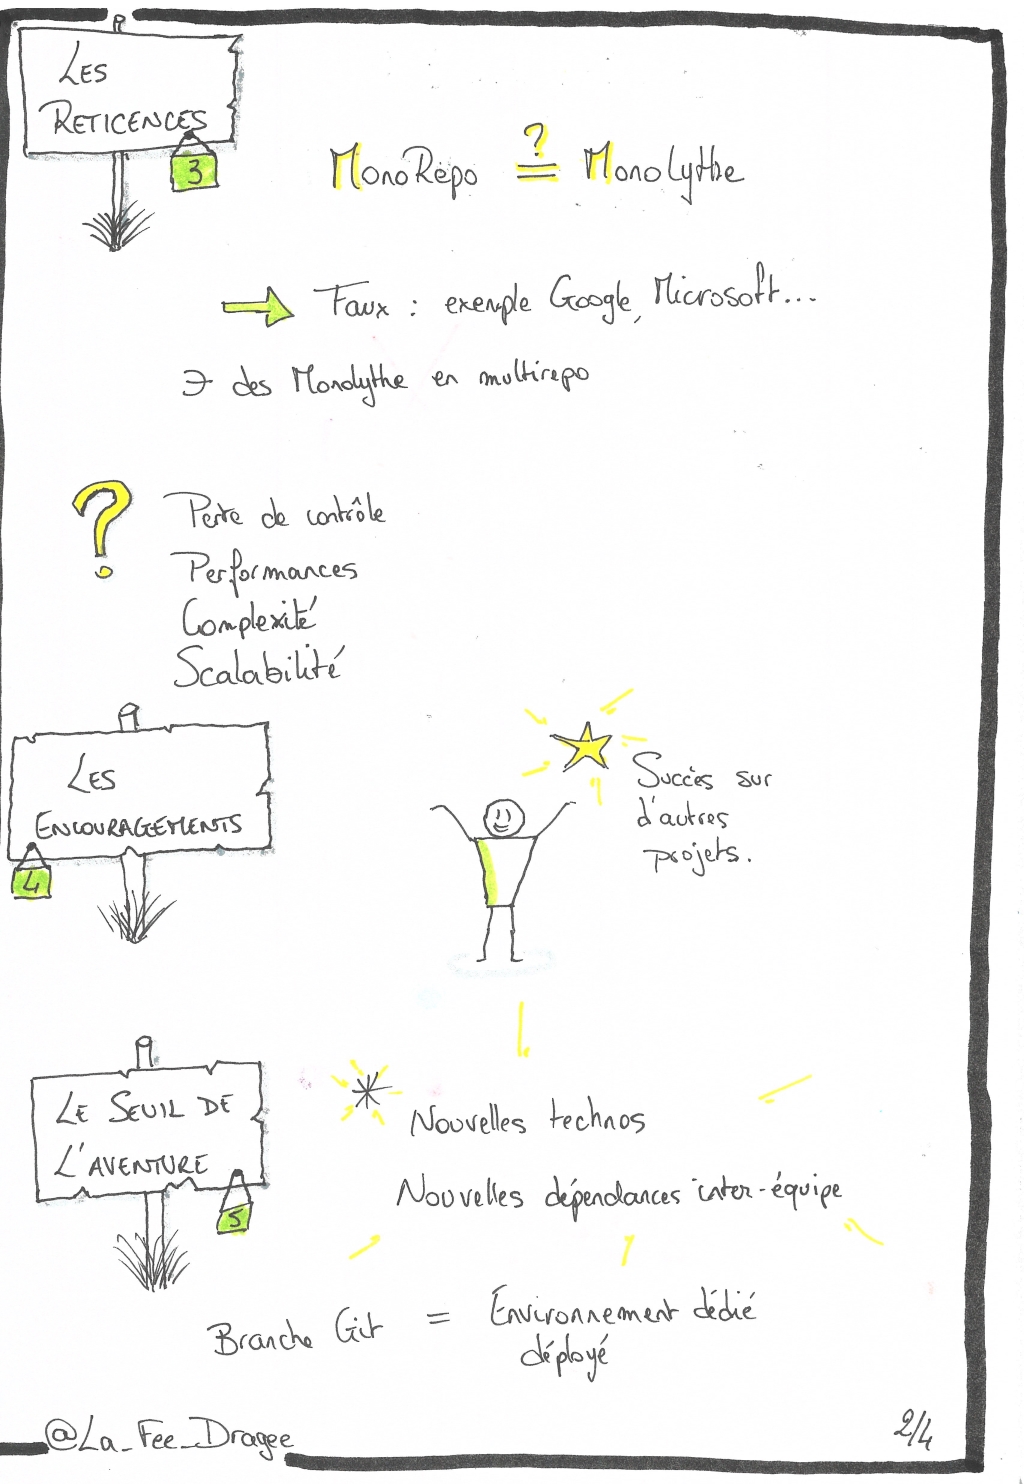 LES
RETICENCES
3
MonoRepo ? = MonoLythe
Faux : exemple Google, Microsoft...
∃ des Monolythe en multirepo
?
Perte de contrôle
Performances
Complexité
Scalabilité
LES
ENCOURAGEMENTS
4
Succès sur
d'autres
projets.
LE SEUIL DE
L'AVENTURE
5
Nouvelles technos
Nouvelles dépendances inter-équipe
Branche Git = Environnement dédié
déployé
@La_Fee_Dragee
2/4